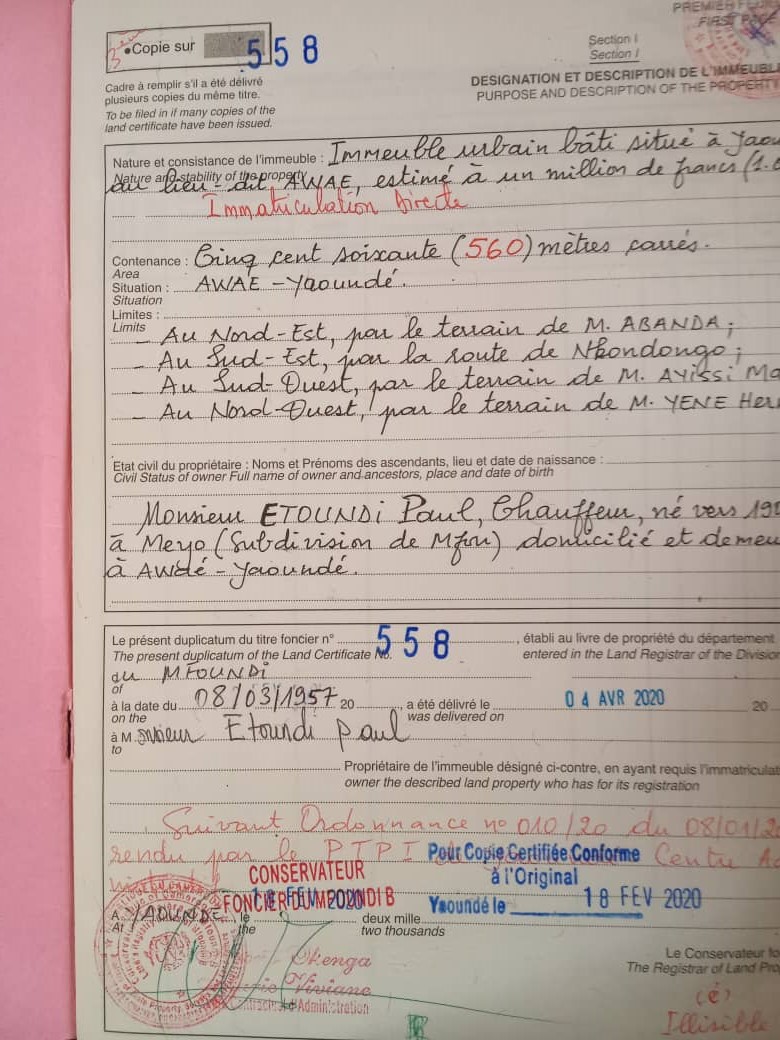 PREMIER
FIRST
3ème
• Copie sur
558
Section I
Section I
Cadre à remplir s'il a été délivré
plusieurs copies du même titre.
To be filed in if many copies of the
land certificate have been issued.
DESIGNATION ET DESCRIPTION DE L'IMMEUBL
PURPOSE AND DESCRIPTION OF THE PROPERTY
Nature et consistance de l'immeuble : Immeuble urbain bâti situé à Yaou
Nature and stability of the property
au lieu-dit AWAE, estimé à un million de francs (1.0
Immatriculation Directe
Contenance : Cinq cent soixante (560) mètres carrés.
Area
Situation : AWAE - Yaoundé.
Situation
Limites :
Limits
- Au Nord-Est, par le terrain de M. ABANDA ;
- Au Sud-Est, par la route de Nkondongo ;
- Au Sud-Ouest, par le terrain de M. AYISSI Ma
- Au Nord-Ouest, par le terrain de M. YENE Her
Etat civil du propriétaire : Noms et Prénoms des ascendants, lieu et date de naissance :
Civil Status of owner Full name of owner and ancestors, place and date of birth
Monsieur ETOUNDI Paul, Chauffeur, né vers 19
à Meyo (Subdivision de Mfou) domicilié et demeu
à AWAE - Yaoundé.
Le présent duplicatum du titre foncier n° 558 , établi au livre de propriété du département
The present duplicatum of the Land Certificate No. entered in the Land Registrar of the Division
du MFOUNDI
of
à la date du 08/03/1957 20 , a été délivré le 04 AVR 2020 20
on the was delivered on
à Monsieur Etoundi Paul
to
Propriétaire de l'immeuble désigné ci-contre, en ayant requis l'immatriculat
owner the described land property who has for its registration
Suivant Ordonnance n° 010/20 du 08/01/20
rendu par le PTPI Centre Ad
Pour Copie Certifiée Conforme
à l'Original
CONSERVATEUR
FONCIER DU MFOUNDI B
18 FEV 2020
Yaoundé le 18 FEV 2020
A YAOUNDE, le deux mille
At the two thousands
Viviane
d'Administration
Le Conservateur fo
The Registrar of Land Pro
(é)
Illisible